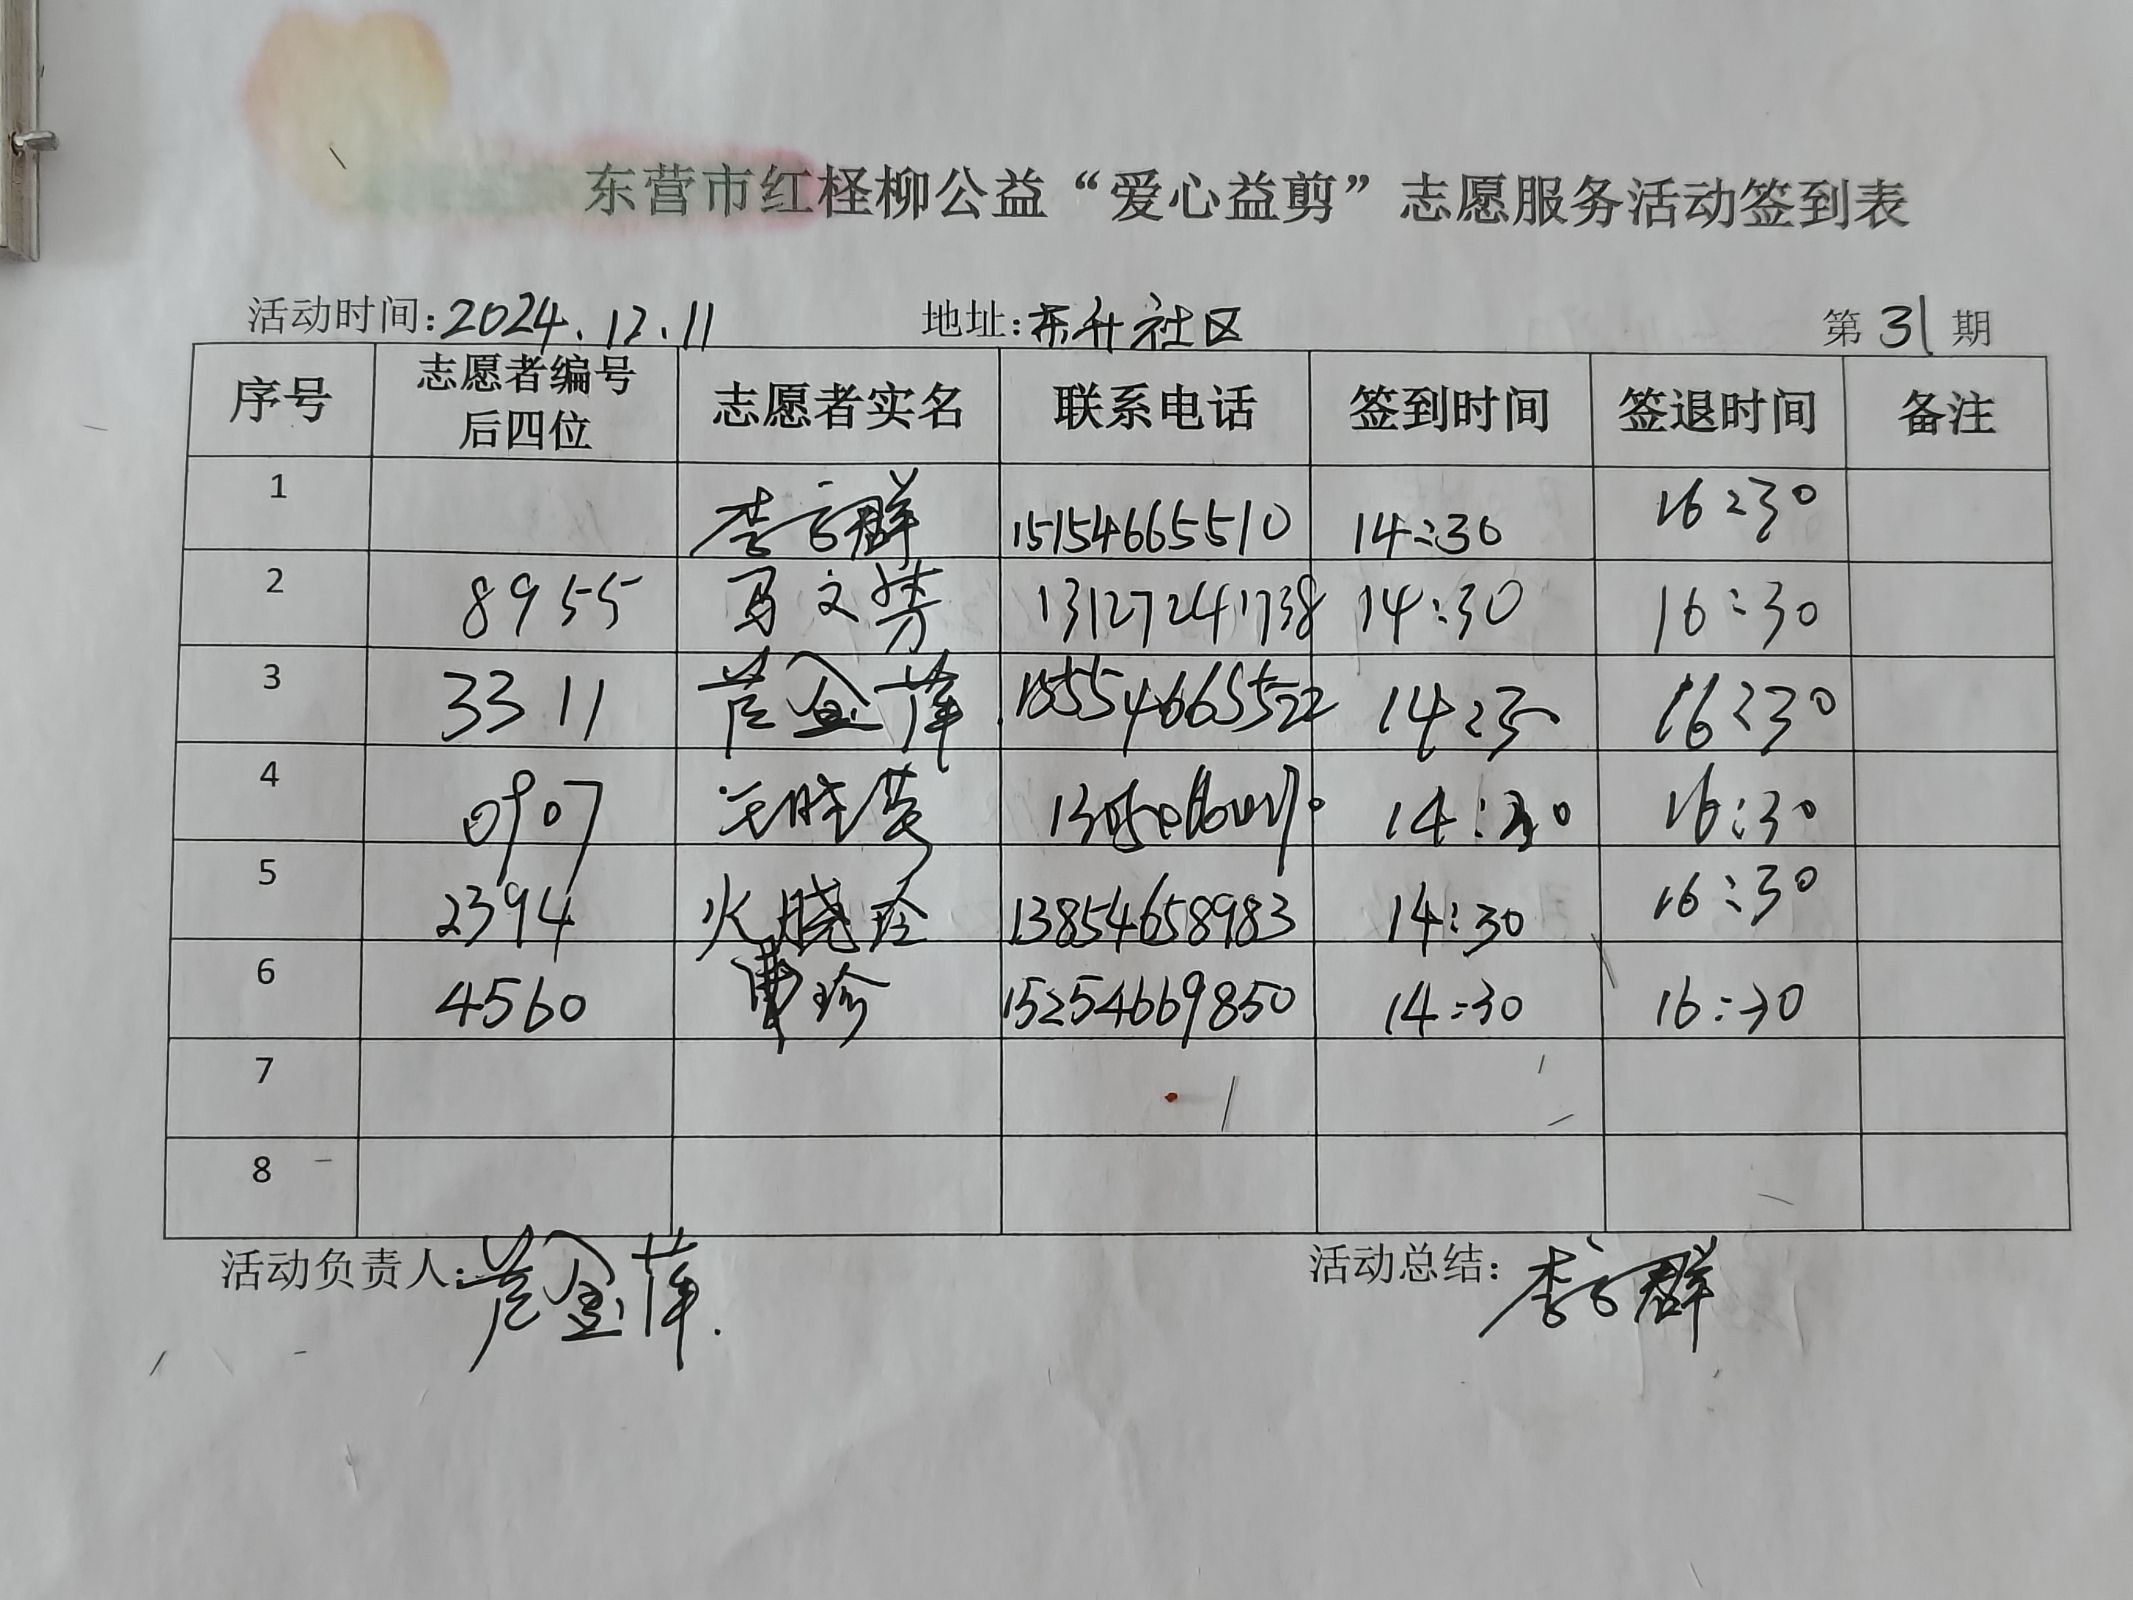 东营市红柽柳公益“爱心益剪”志愿服务活动签到表
活动时间:2024.12.11 地址:东升社区 第31期
序号 志愿者编号后四位 志愿者实名 联系电话 签到时间 签退时间 备注
1 李云群 15154665510 14:30 16:30
2 8955 马文芳 13127241738 14:30 16:30
3 3311 黄金萍 14:25 16:30
4 0907 14:30 16:30
5 2394 火晓玲 13854658983 14:30 16:30
6 4560 曹珍 15254669850 14:30 16:30
7
8
活动负责人:黄金萍. 活动总结:李云群